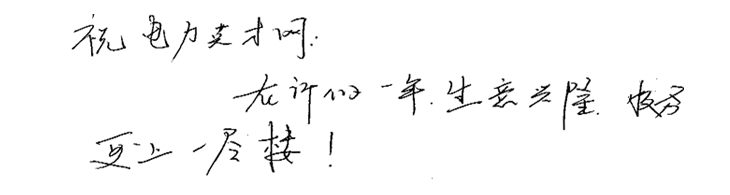 祝电力英才网:
在新的一年.生意兴隆.服务
更上一层楼!